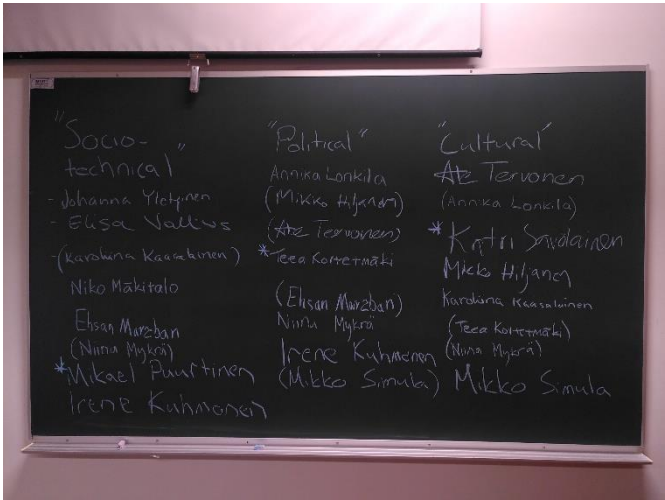 "Socio-
technical"
- Johanna Yletyinen
- Elisa Vallius
- (Karoliina Kaasalainen)
Niko Mäkitalo
Ehsan Marzban
(Niina Mykrä)
* Mikael Puurtinen
Irene Kuhmonen
"Political"
Annika Lonkila
(Mikko Hiljanen)
(Ate Tervonen)
* Teea Kortetmäki
(Ehsan Marzban)
Niina Mykrä
Irene Kuhmonen
(Mikko Simula)
"Cultural"
Ate Tervonen
(Annika Lonkila)
* Katri Savolainen
Mikko Hiljanen
Karoliina Kaasalainen
(Teea Kortetmäki)
(Niina Mykrä)
Mikko Simula